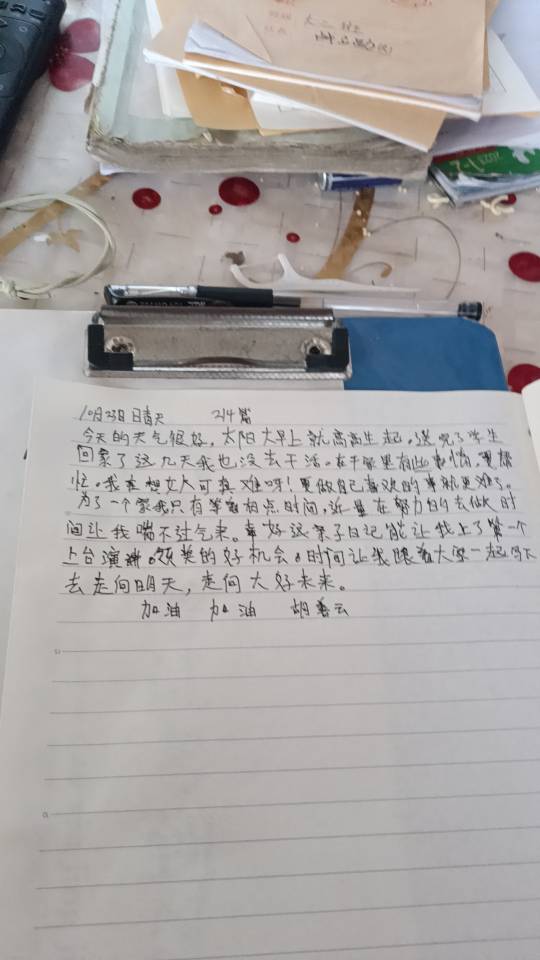 大二班
10月23日晴天 214篇
今天的天气很好,太阳大早上就高高生起。送完了学生
回家了这几天我也没去干活。在千家里有些事情,要帮
忙。我在想女人可真难呀!要做自己喜欢的事就更难了。
为了一个家我只有等有点时间,近量在努力的去做时
间让我喘不过气来。幸好这亲子日记能让我上了第一个
上台演讲。领奖的好机会。时间让我跟着大家一起写下
去走向明天,走向大好未来。
加油 加油 胡善云